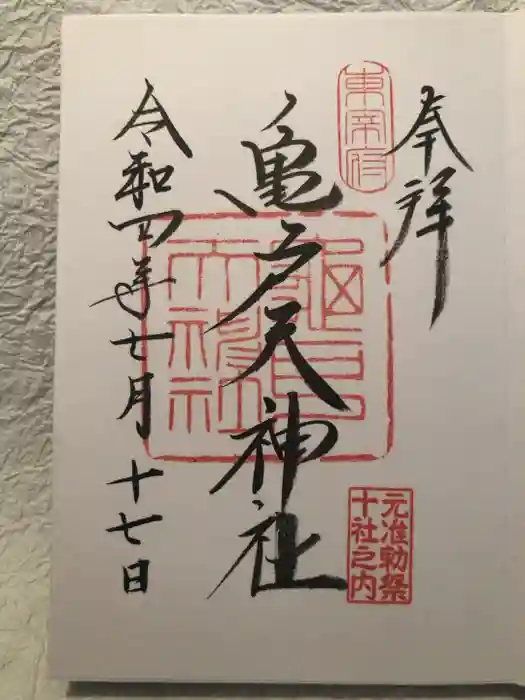 奉拝
東宰府
亀戸天神社
元准勅祭
十社之内
令和四年七月十七日